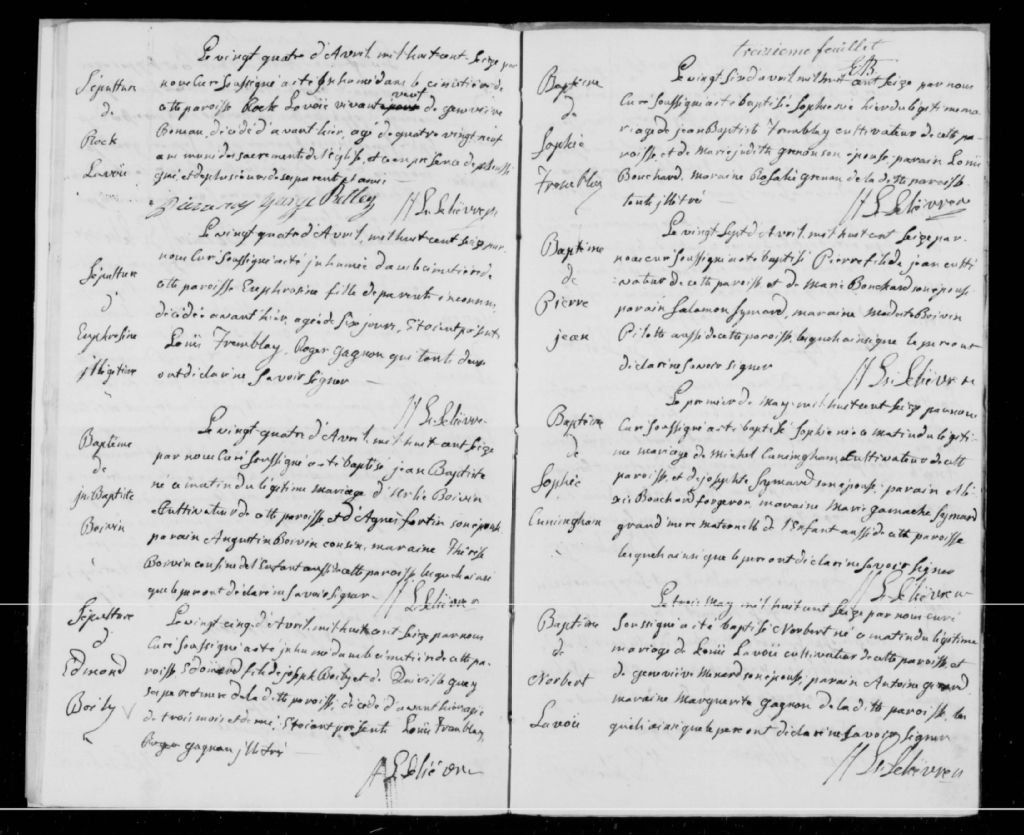 Sépulture
de
Rock
Lavoie
Le vingt quatre d'Avril, mil huit cent Seize par
nous Curé Soussigné a été Inhumé dans le cimetière de
cette paroisse Rock Lavoie vivant veuf de genevieve
décédé d'avant hier, agé de quatre vingt neuf
ans muni des sacrements de l'église, et en presence de
et de plusieurs de ses parents et amis
Sépulture
d'
Euphrosine
jllégitime
Le vingt quatre d'Avril, mil huit cent Seize par
nous Curé Soussigné a été jnhumée dans le cimetière de
cette paroisse Euphrosine fille de parents inconnus,
décédée avant hier, agée de Six jours, Etoient présents
Louis Tremblay, Roger Gagnon qui tout deux
ont déclaré ne Savoir Signer
Baptême
de
jn Baptiste
Boivin
Le vingt quatre d'Avril, mil huit cent Seize
par nous Curé Soussigné a été baptisé jean Baptiste
né ce matin du légitime mariage d' Boivin
Cultivateur de cette paroisse, et d'Agnès fortin son épouse
parain Augustin Boivin cousin, maraine Thérèse
Boivin cousine de l'Enfant aussi de cette paroisse lesquels ainsi
que le pere ont déclaré ne Savoir Signer
Sépulture
d'
Edmond
Boily
Le vingt cinq d'Avril, mil huit cent Seize par nous
Curé Soussigné a été jnhumé dans le cimetière de cette pa-
roisse Edouard fils de joseph Boily et de
ses pere et mere de la dite paroisse, décédé d'avant hier agé
de trois mois et demi, Etoient présents Louis Tremblay
Roger gagnon jlletrés
treizieme feuillet
Baptême
de
Sophie
Tremblay
Le vingt Six d'avril mil huit cent Seize par nous
Curé Soussigné a été baptisé Sophie née hier du légitime ma-
riage de jean Baptiste Tremblay cultivateur de cette pa-
roisse, et de Marie judith grenon son épouse, parain Louis
Bouchard, maraine Rosalie grenon de la dite paroisse
touts jlletrés
Baptême
de
Pierre
jean
Le vingt Sept d'Avril, mil huit cent Seize par
nous Curé Soussigné a été baptisé Pierre fils de jean culti-
vateur de cette paroisse et de Marie Bouchard son épouse
parain Salomon Symard, maraine Boivin
Pilotte aussi de cette paroisse lesquels ainsi que le pere ont
déclaré ne Savoir Signer
Baptême
de
Sophie
Cuningham
Le premier de May mil huit cent Seize par nous
Curé Soussigné a été baptisé Sophie née ce matin du légiti-
me mariage de Michel Cuningham Cultivateur de cette
paroisse, et de josephte Symard son épouse, parain Al-
exis Bouchard forgeron, maraine Marie gamache Symard
grand'mere maternelle de l'Enfant aussi de cette paroisse
lesquels ainsi que le pere ont déclaré ne Savoir Signer
Baptême
de
Norbert
Lavoie
Le trois May mil huit cent Seize par nous curé
Soussigné a été baptisé Norbert né ce matin du légitime
mariage de Louis Lavoie cultivateur de cette paroisse et
de genevieve Minard son épouse, parain Antoine girard
maraine Marguerite gagnon de la dite paroisse, les
quels ainsi que le pere ont déclaré ne Savoir Signer